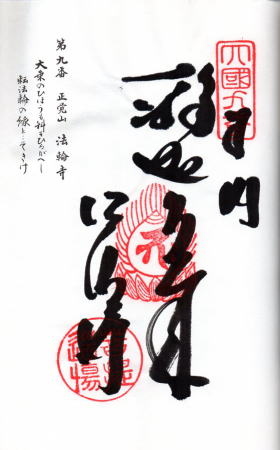 奉納
釋迦如来
法輪寺
第九番 正覚山 法輪寺
大乗のひはうも科もひるがへし
転法輪の縁とこそきけ